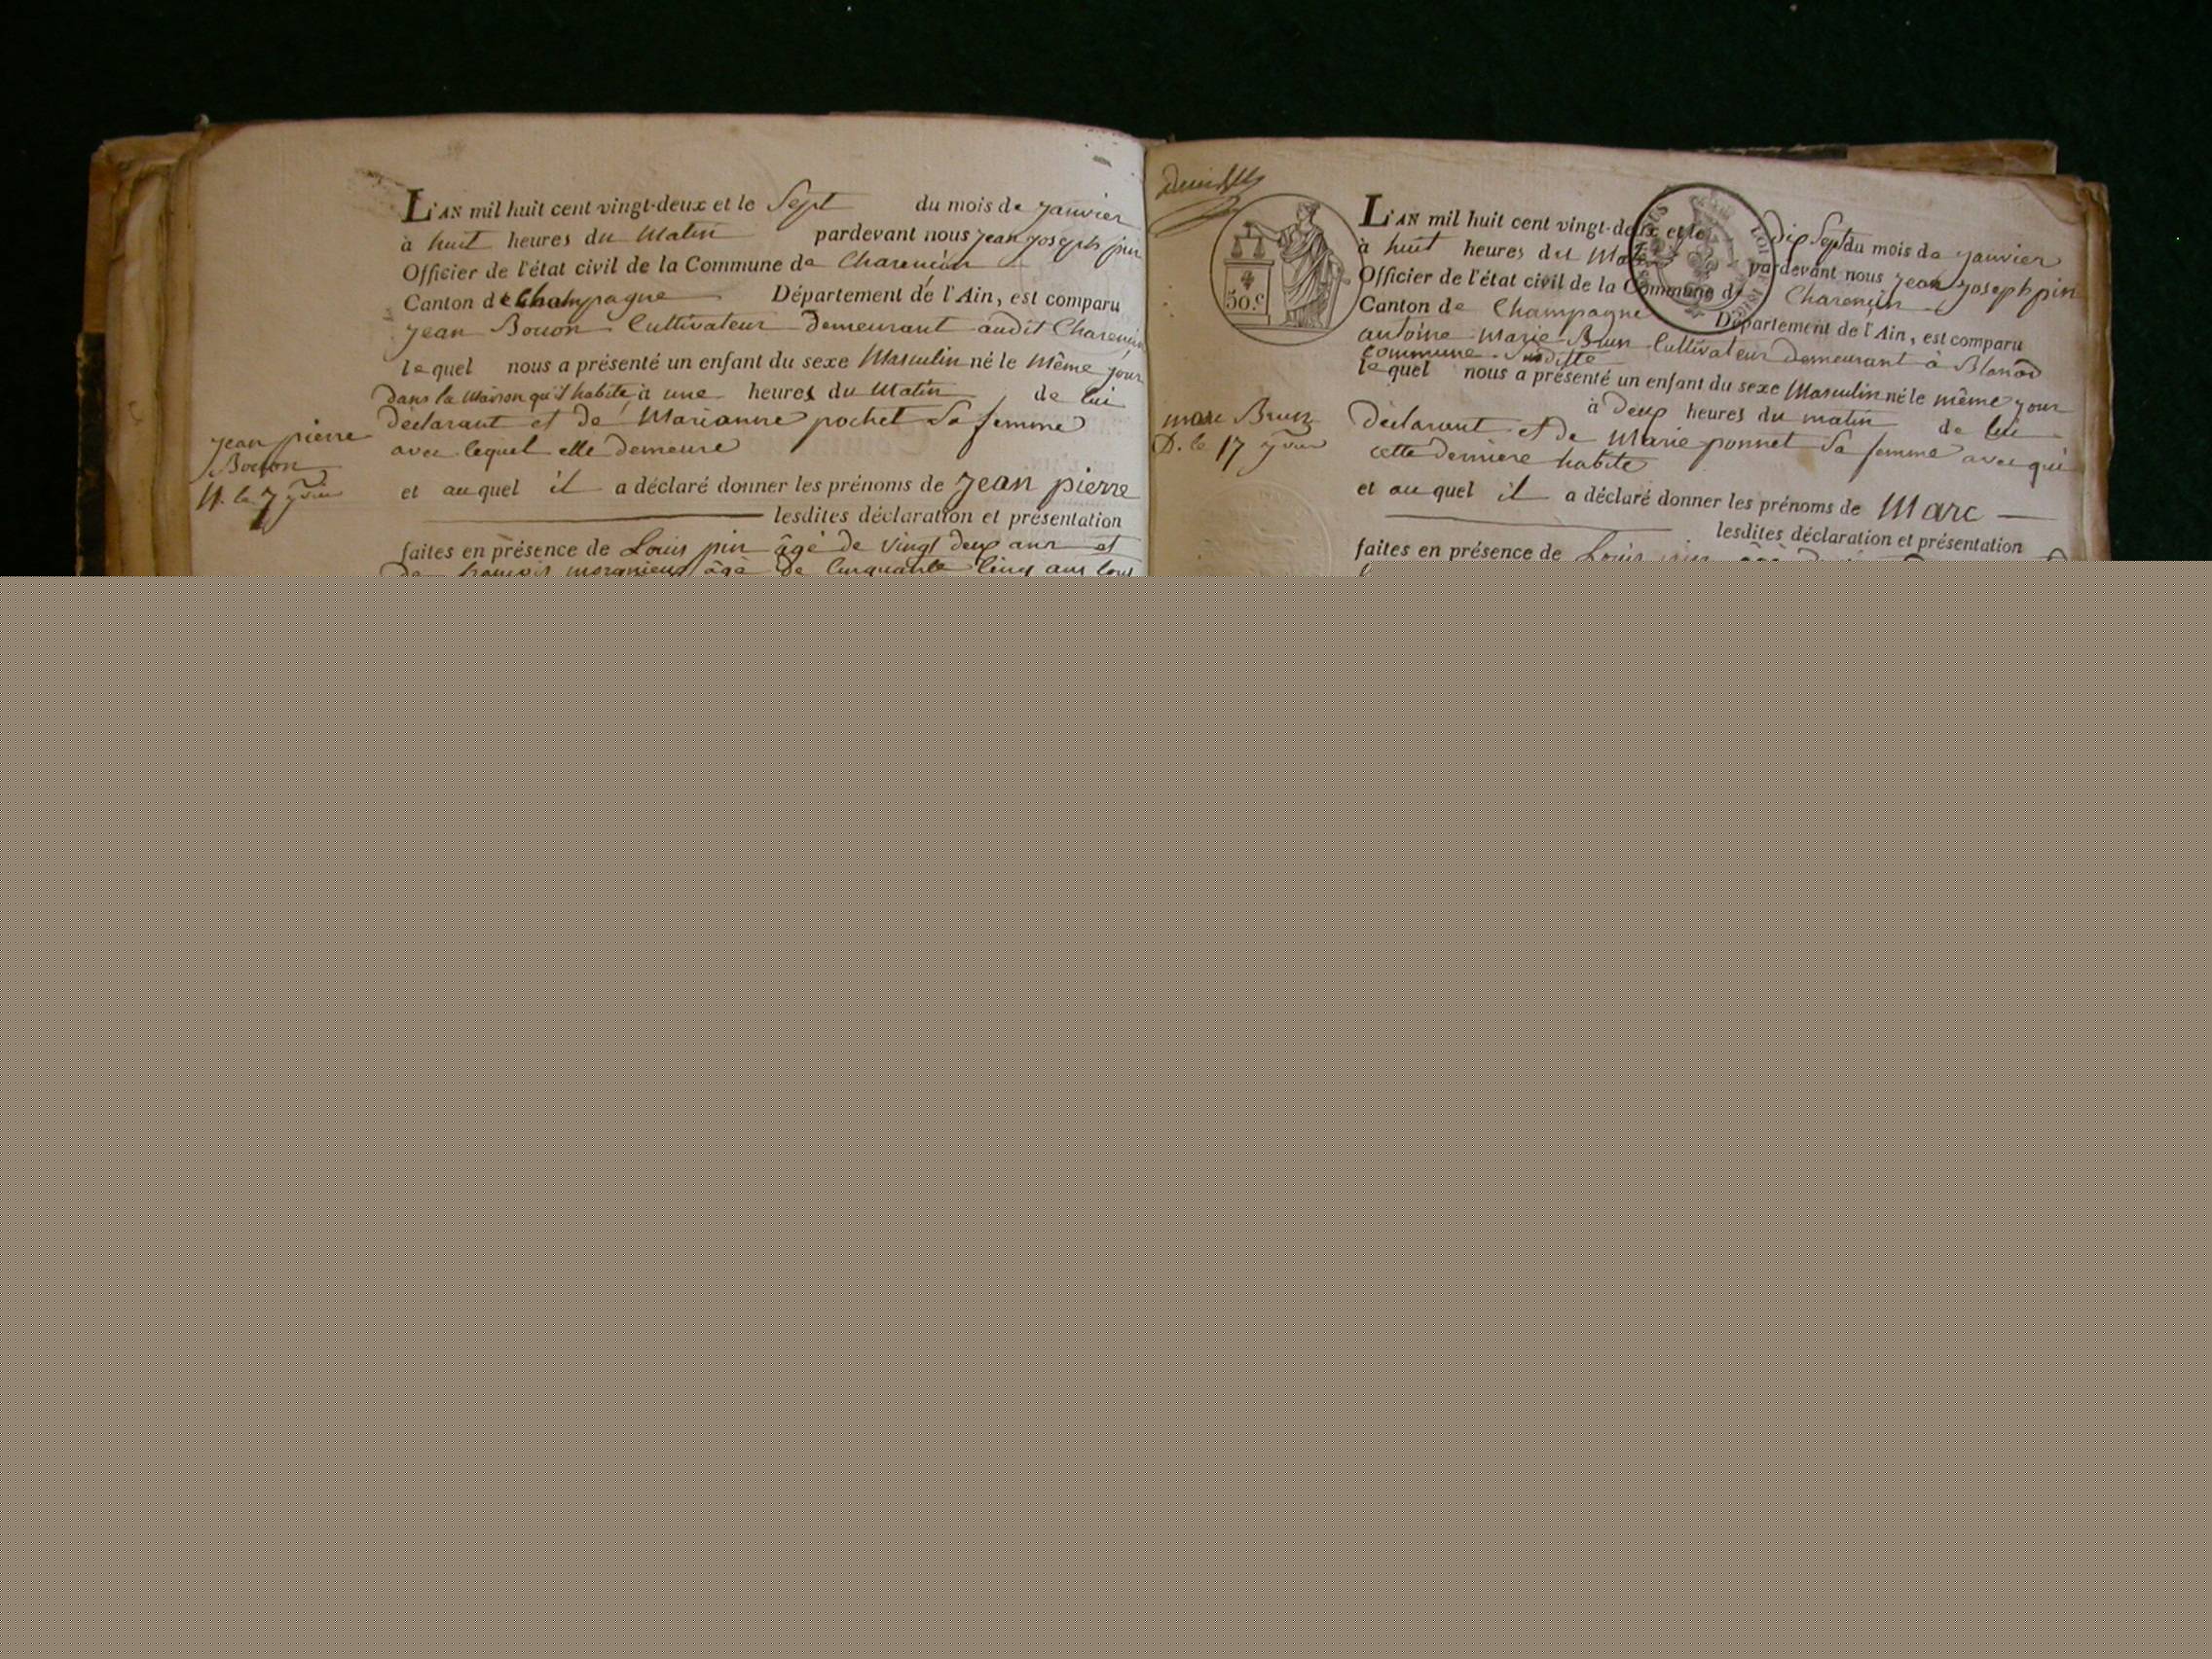 L'AN mil huit cent vingt-deux et le Sept du mois de janvier
à huit heures du Matin pardevant nous jean joseph pin
Officier de l'état civil de la Commune de Charencin
Canton de Champagne Département de l'Ain, est comparu
jean Bouon Cultivateur demeurant audit Charencin
lequel nous a présenté un enfant du sexe Masculin né le Même jour
dans la Maison qu'il habite, à une heures du Matin de lui
déclarant et de Marianne pochet Sa femme
avec lequel elle demeure
jean pierre
Bouon
N. le 7 jvier
et auquel il a déclaré donner les prénoms de jean pierre
lesdites déclaration et présentation
faites en présence de Louis pin âgé de vingt deux ans et
de âgé de Cinquante Cinq ans tous
4
50.c
L'AN mil huit cent vingt-deux et le dix Sept du mois de janvier
à huit heures du Matin pardevant nous jean joseph pin
Officier de l'état civil de la Commune de Charencin
Canton de Champagne Département de l'Ain, est comparu
antoine Marie Brun Cultivateur demeurant à Blanad
commune Susditte
lequel nous a présenté un enfant du sexe Masculin né le même jour
à deux heures du matin de lui
marc Brun
D. le 17 jvier
déclarant et de Marie ponnet Sa femme avec qui
cette derniere habite
et auquel il a déclaré donner les prénoms de Marc
lesdites déclaration et présentation
faites en présence de Louis pin âgé